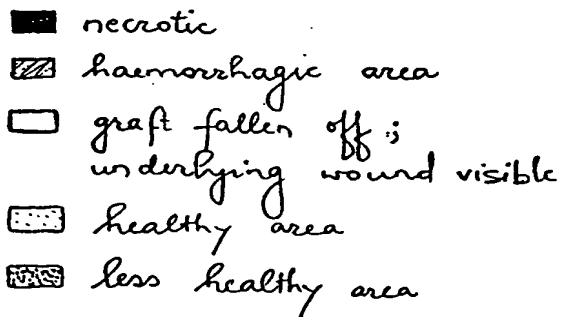 necrotic
haemorrhagic area
graft fallen off;
underlying wound visible
healthy area
less healthy area